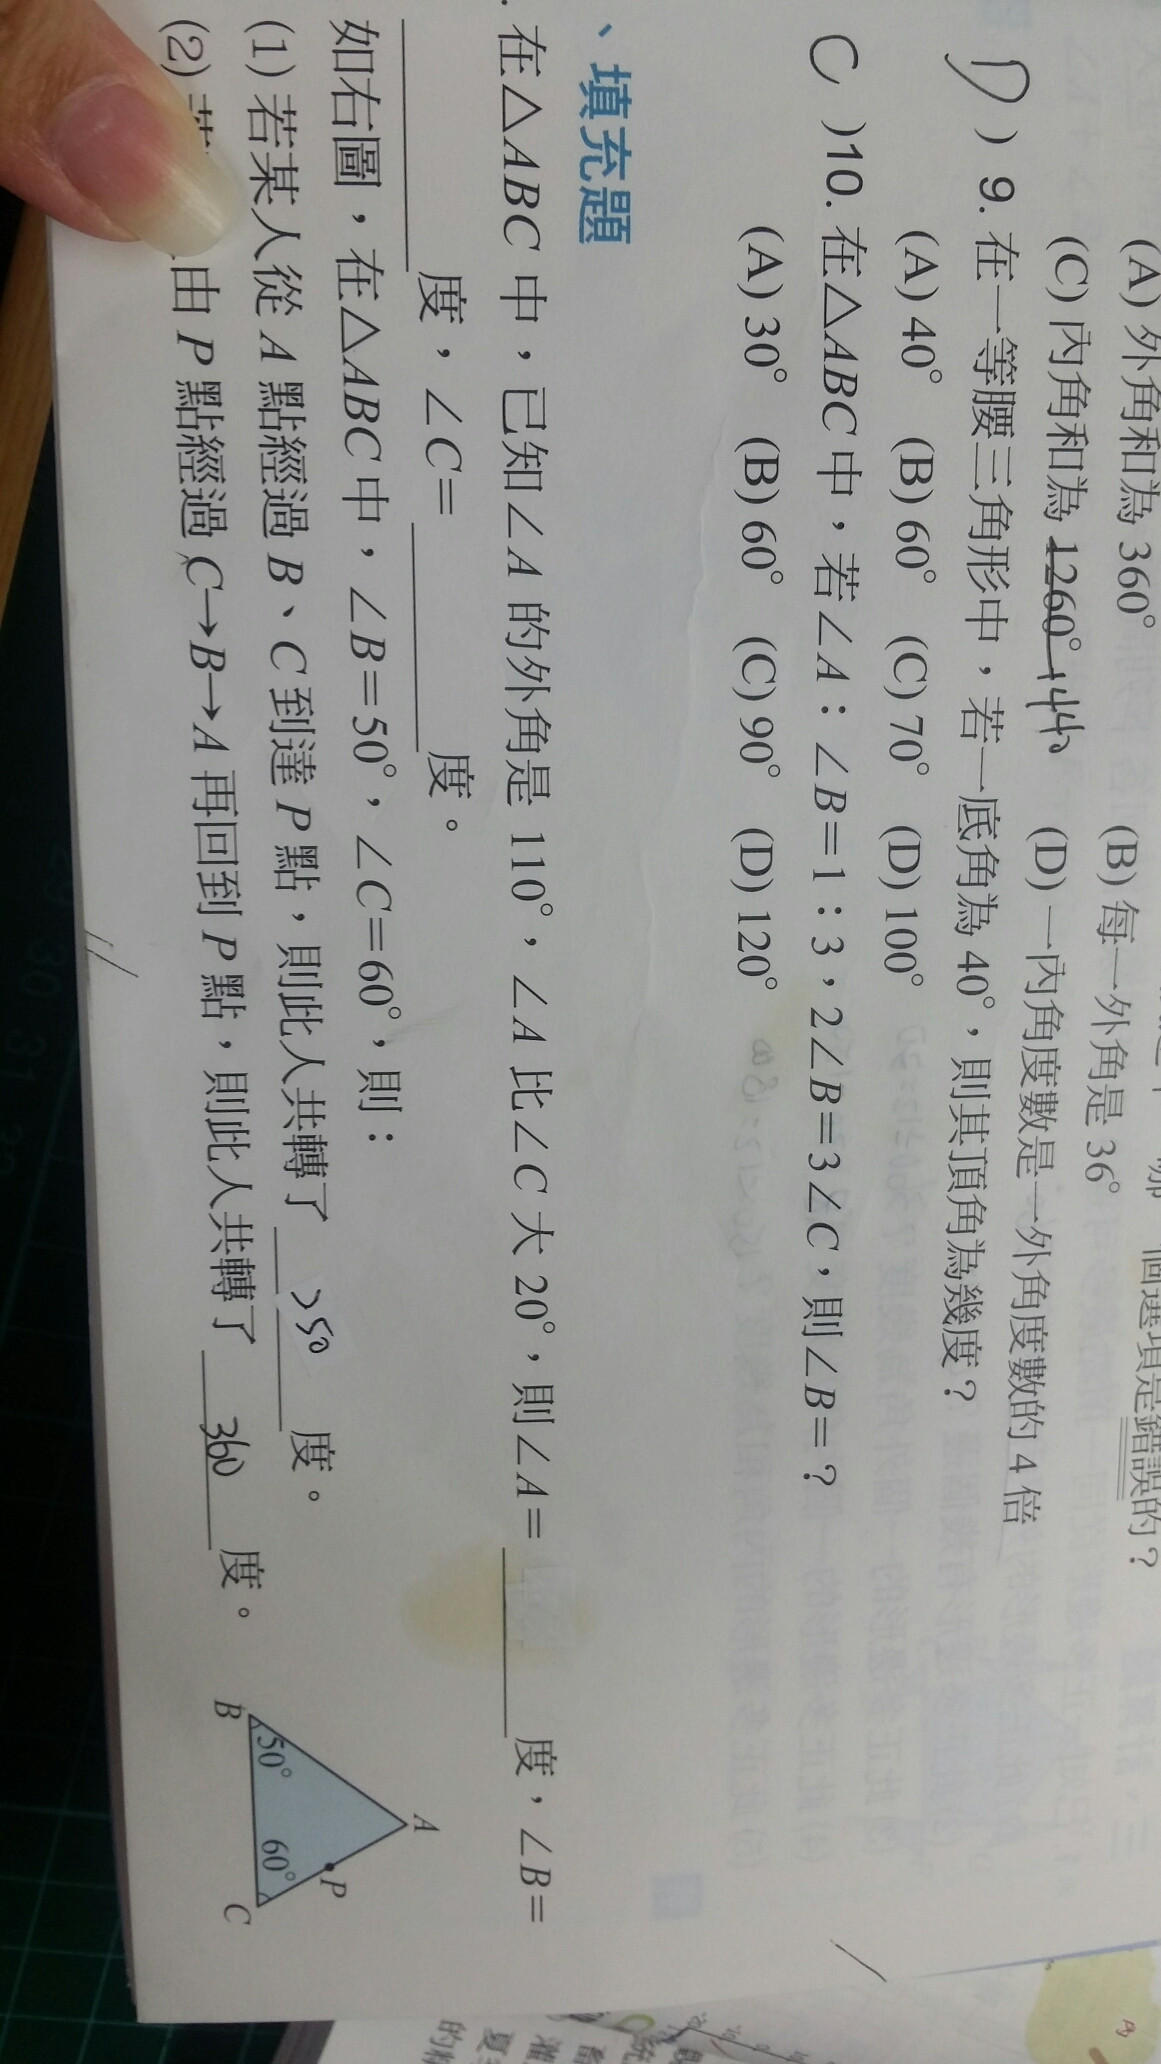 個選項是錯誤的?
(A) 外角和為 360° (B) 每一外角是 36°
(C) 內角和為 1260° 1440 (D) 一內角度數是一外角度數的 4 倍
D ) 9. 在一等腰三角形中,若一底角為 40°,則其頂角為幾度?
(A) 40° (B) 60° (C) 70° (D) 100°
C )10. 在△ABC 中,若∠A:∠B=1:3,2∠B=3∠C,則∠B=?
(A) 30° (B) 60° (C) 90° (D) 120°
、填充題
. 在△ABC 中,已知∠A 的外角是 110°,∠A 比∠C 大 20°,則∠A=______度,∠B=
______度,∠C=______度。
如右圖,在△ABC 中,∠B=50°,∠C=60°,則:
(1) 若某人從 A 點經過 B、C 到達 P 點,則此人共轉了 250 度。
(2) 若 由 P 點經過 C→B→A 再回到 P 點,則此人共轉了 360 度。
A
P
50° 60°
B C